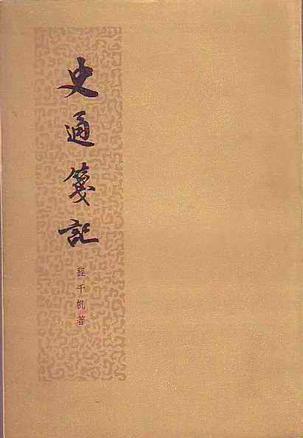 史通箋記
程千帆著